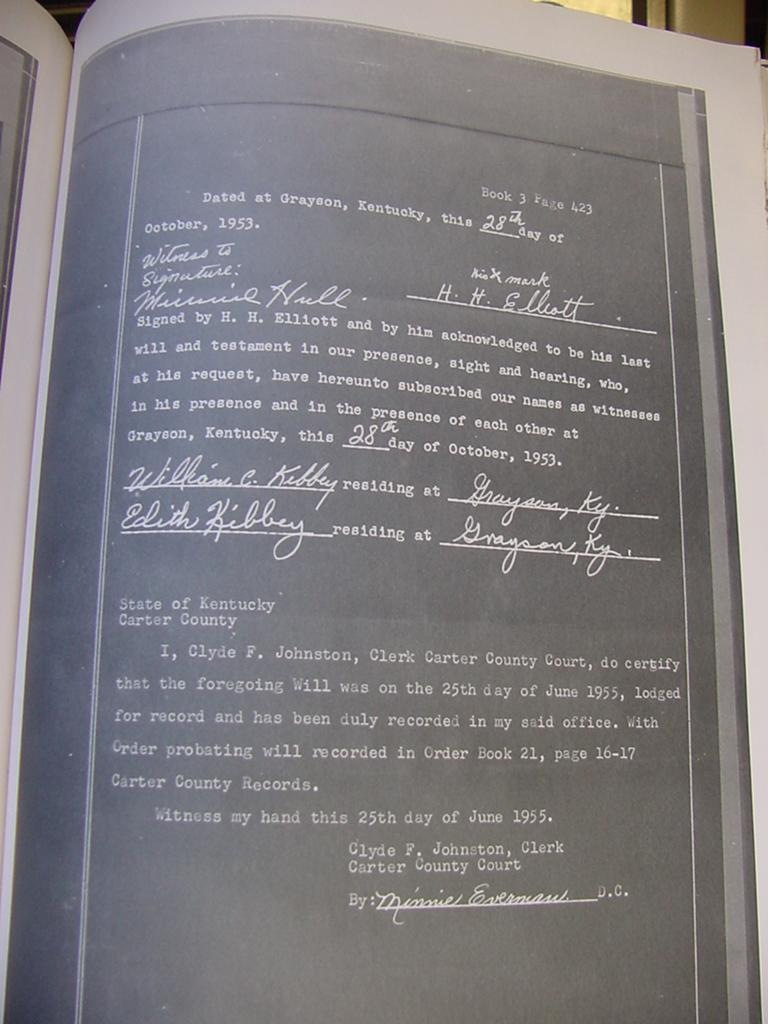 Book 3 Page 423
Dated at Grayson, Kentucky, this 28th day of
October, 1953.
Witness to
Signature:
his X mark
Minnie Hull. H. H. Elliott
Signed by H. H. Elliott and by him acknowledged to be his last
will and testament in our presence, sight and hearing, who,
at his request, have hereunto subscribed our names as witnesses
in his presence and in the presence of each other at
Grayson, Kentucky, this 28th day of October, 1953.
William C. Kibbey residing at Grayson, Ky.
Edith Kibbey residing at Grayson, Ky.
State of Kentucky
Carter County
I, Clyde F. Johnston, Clerk Carter County Court, do certify
that the foregoing Will was on the 25th day of June 1955, lodged
for record and has been duly recorded in my said office. With
Order probating will recorded in Order Book 21, page 16-17
Carter County Records.
Witness my hand this 25th day of June 1955.
Clyde F. Johnston, Clerk
Carter County Court
By: Minnie Everman D.C.